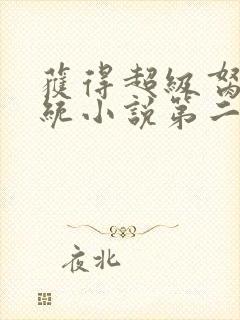 獲得超級
統小說第二
夜北